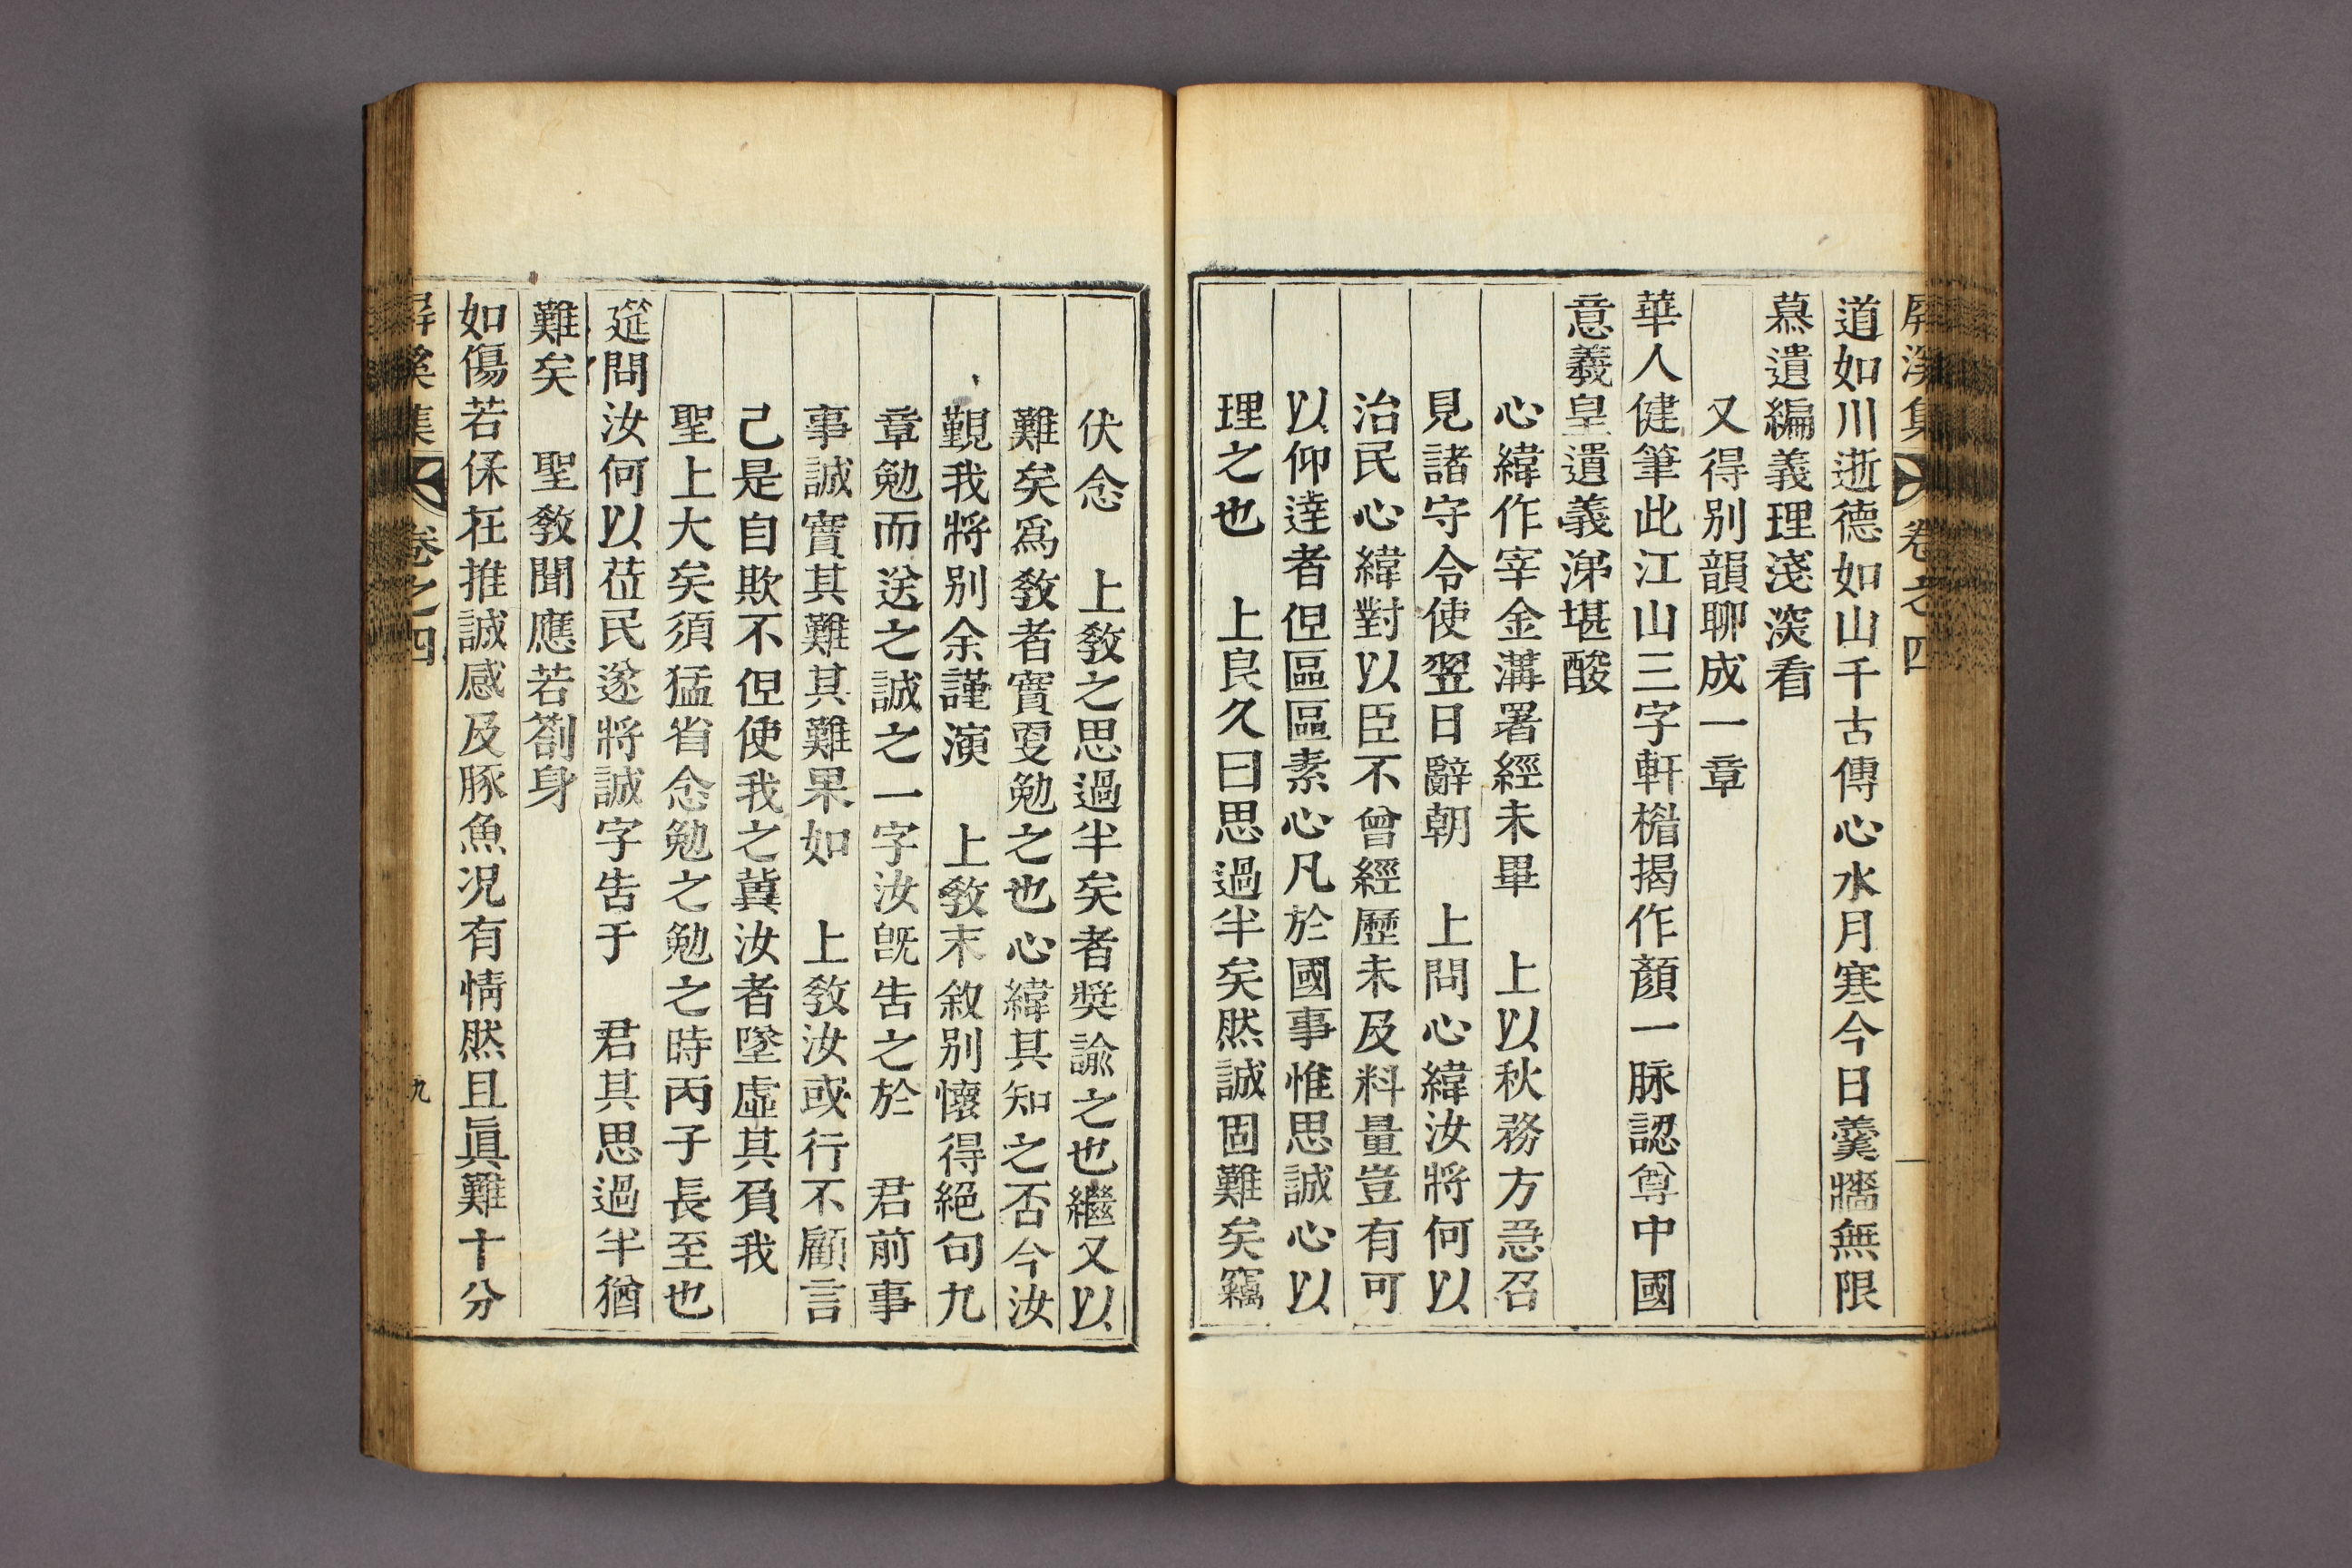 屛溪集 卷之四
道如川逝德如山千古傳心水月寒今日羹牆無限
慕遺編義理淺深看
又得別韻聊成一章
華人健筆此江山三字軒楣揭作顏一脉認尊中國
意義皇遺義涕堪酸
心緯作宰金溝署經未畢　上以秋務方急召
見諸守令使翌日辭朝　上問心緯汝將何以
治民心緯對以臣不曾經歷未及料量豈有可
以仰達者但區區素心凡於國事惟思誠心以
理之也　上良久曰思過半矣然誠固難矣竊
伏念　上敎之思過半矣者奬諭之也繼又以
難矣爲敎者實要勉之也心緯其知之否今汝
覲我將別余謹演　上敎末敘別懷得絕句九
章勉而送之誠之一字汝旣告之於　君前事
事誠實其難其難果如　上敎汝或行不顧言
己是自欺不但使我之冀汝者墜虛其負我
聖上大矣須猛省念勉之勉之時丙子長至也
筵問汝何以莅民遂將誠字告于　君其思過半猶
難矣　聖敎聞應若劄身
如傷若保在推誠感及豚魚况有情然且眞難十分
屛溪集 卷之四 九